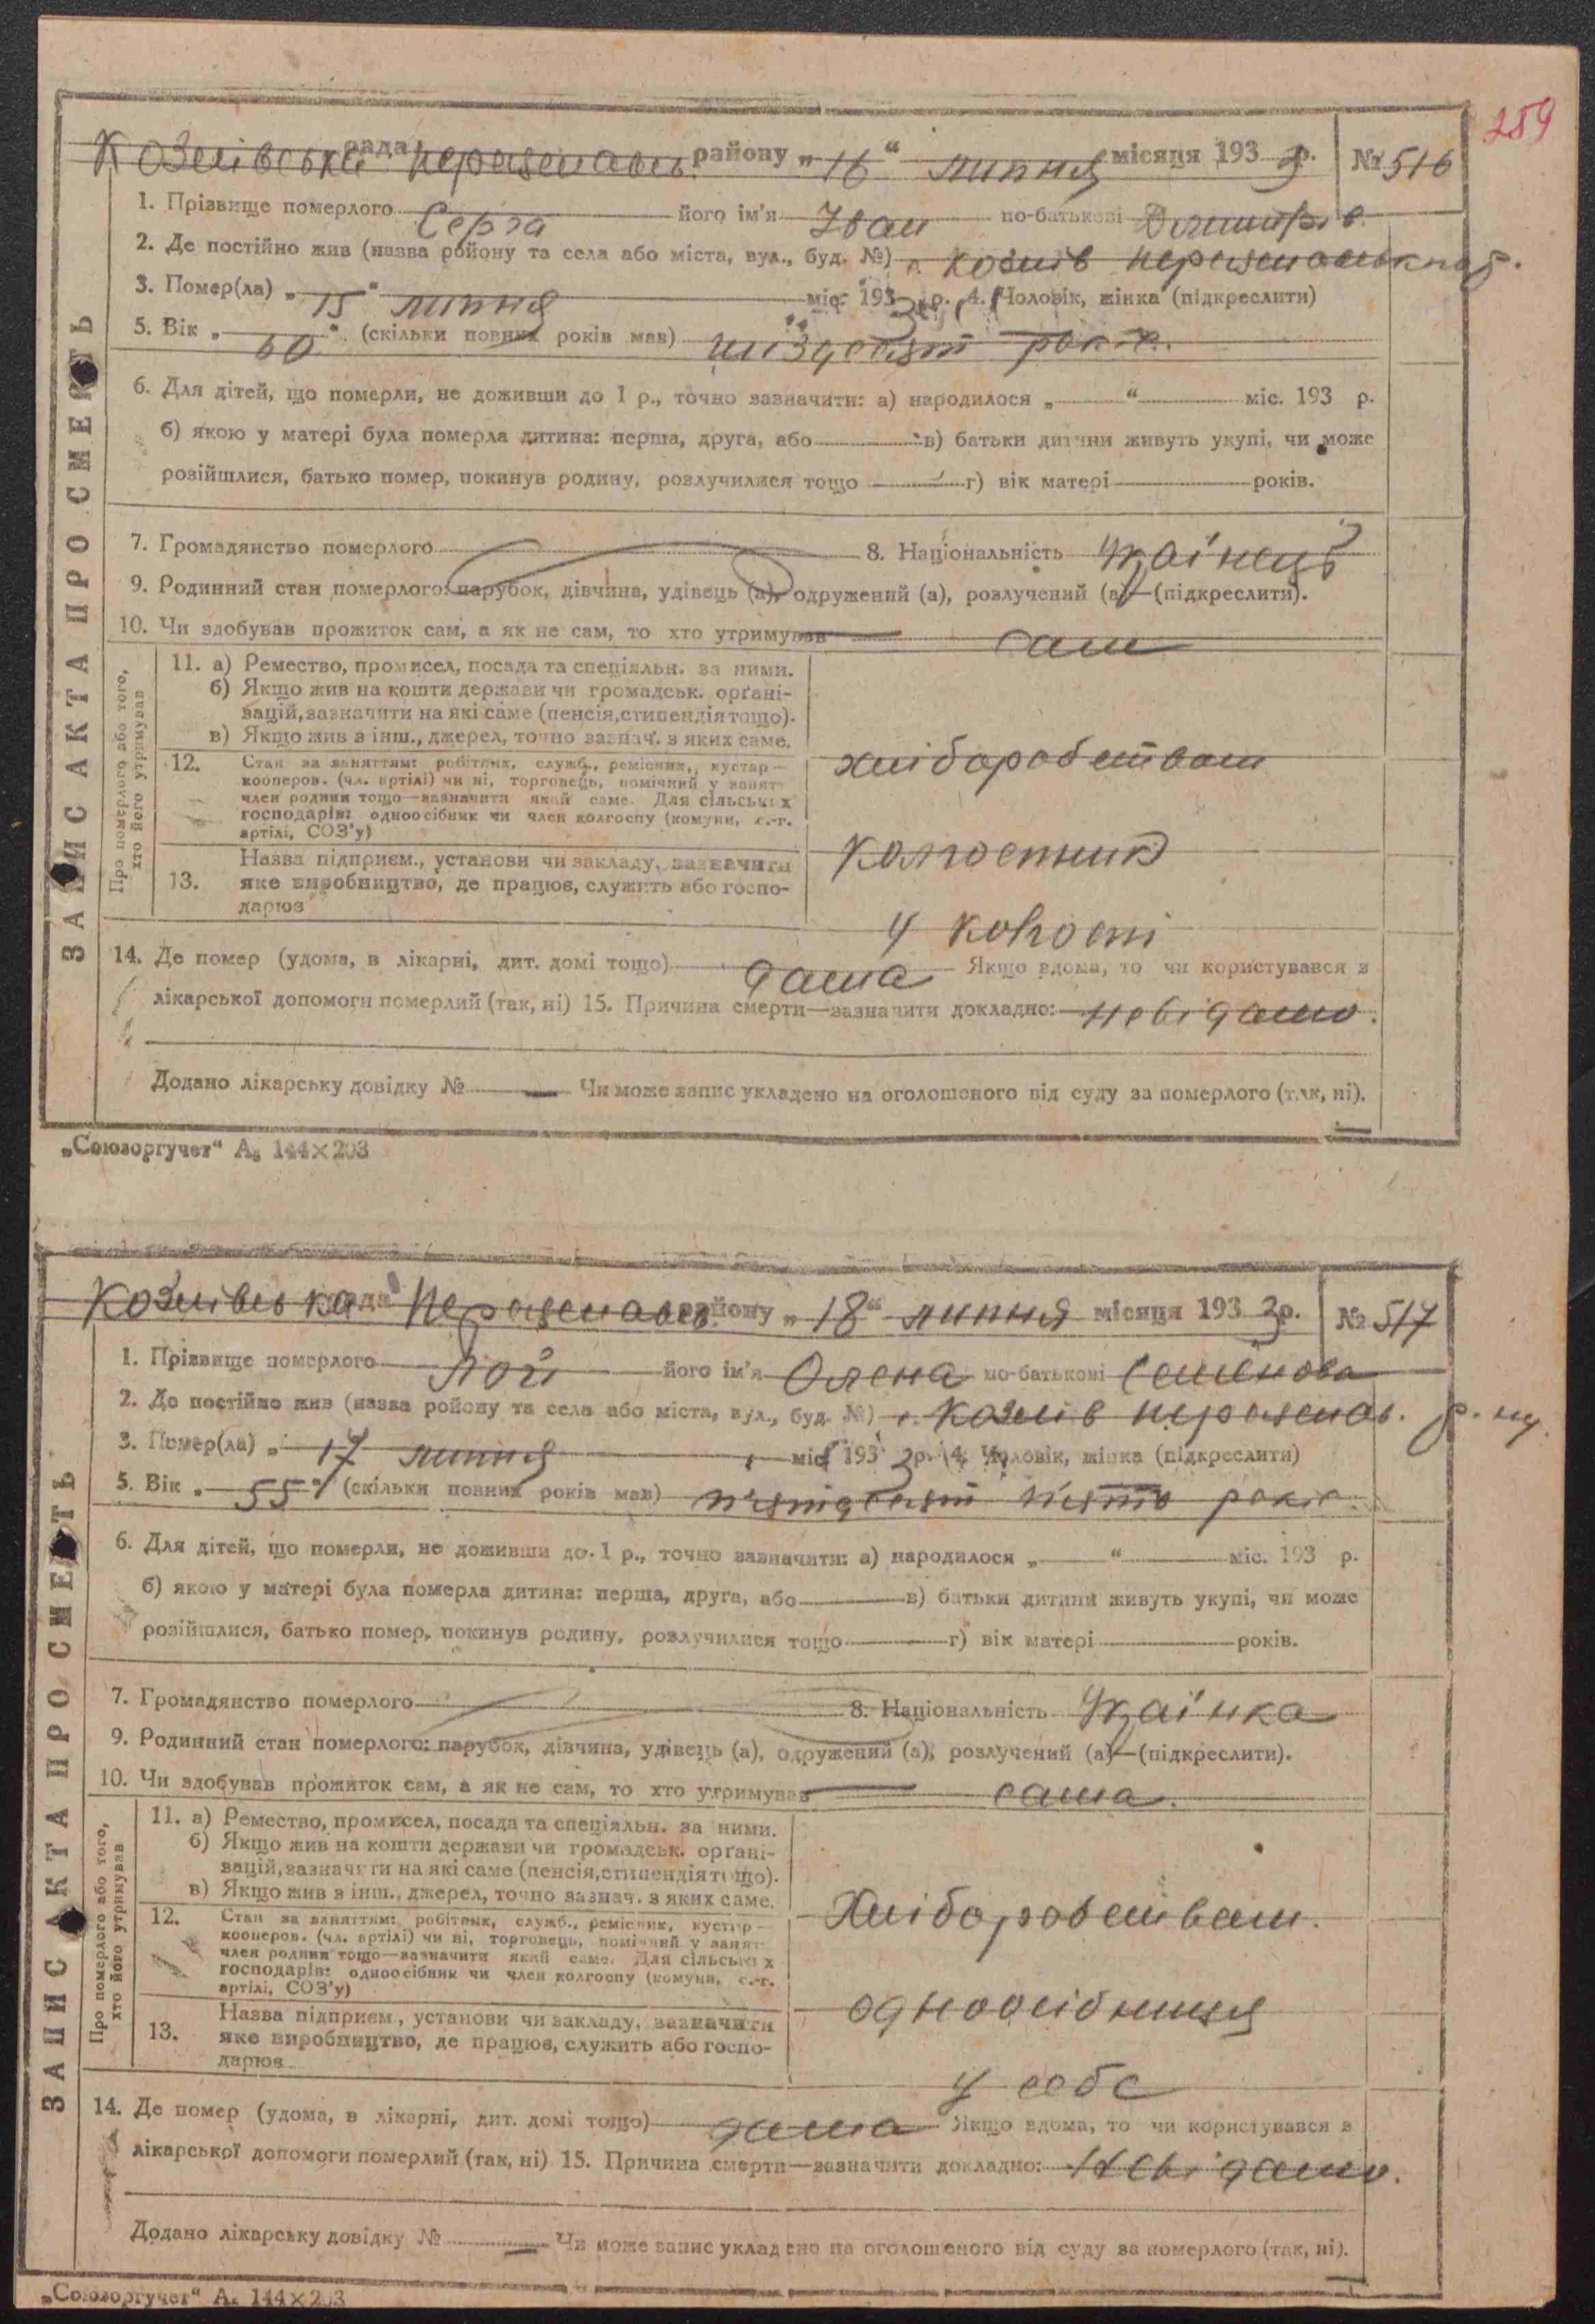 289
Козлівська рада Переяславськ. району „16“ липня місяця 1933 р. № 516
1. Прізвище померлого Серга його ім'я Іван по-батькові
2. Де постійно жив (назва району та села або міста, вул., буд. №) с. Козлів Переяславськ
3. Помер(ла) „15“ липня міс. 1933 р. 4. Чоловік, жінка (підкреслити)
5. Вік „60“ (скільки повних років мав) шісдесят років.
6. Для дітей, що померли, не доживши до 1 р., точно зазначити: а) народилося „ “ міс. 193 р.
б) якою у матері була померла дитина: перша, друга, або в) батьки дитини живуть укупі, чи може
розійшлися, батько помер, покинув родину, розлучилися тощо г) вік матері років.
7. Громадянство померлого 8. Національність Украінець
9. Родинний стан померлого: парубок, дівчина, удівець (а), одружений (а), розлучений (а)—(підкреслити).
10. Чи здобував прожиток сам, а як не сам, то хто утримував сам
ЗАПИС АКТА ПРО СМЕРТЬ
Про померлого або того,
хто його утримував
11. а) Ремество, промисел, посада та спеціяльн. за ними.
б) Якщо жив на кошти держави чи громадськ. орґані-
зацій, зазначити на які саме (пенсія, стипендія тощо).
в) Якщо жив з інш., джерел, точно зазнач. з яких саме.
хліборобством
12. Стан за заняттям: робітник, служб., ремісник, кустар—
кооперов. (чл. артілі) чи ні, торговець, помічний у занят-
член родини тощо—зазначити який саме. Для сільських
господарів: одноосібник чи член колгоспу (комуни, с.-г.
артілі, СОЗ'у)
колгоспник
13. Назва підприєм., установи чи закладу, зазначити
яке виробництво, де працює, служить або госпо-
дарює
у колгоспі
14. Де помер (удома, в лікарні, дит. домі тощо) дома Якщо вдома, то чи користувався з
лікарської допомоги померлий (так, ні) 15. Причина смерти—зазначити докладно: невідомо.
Додано лікарську довідку № — Чи може запис укладено на оголошеного від суду за померлого (так, ні).
„Союзоргучет“ А₅ 144×203
Козлівська рада Переяславськ. району „18“ липня місяця 1933 р. № 517
1. Прізвище померлого його ім'я Олена по-батькові Семенова
2. Де постійно жив (назва району та села або міста, вул., буд. №) с. Козлів Переяслав. р-ну.
3. Помер(ла) „17“ липня міс. 1933 р. 4. Чоловік, жінка (підкреслити)
5. Вік „55“ (скільки повних років мав) п'ятдесят п'ять років.
6. Для дітей, що померли, не доживши до 1 р., точно зазначити: а) народилося „ “ міс. 193 р.
б) якою у матері була померла дитина: перша, друга, або в) батьки дитини живуть укупі, чи може
розійшлися, батько помер, покинув родину, розлучилися тощо г) вік матері років.
7. Громадянство померлого 8. Національність Украінка
9. Родинний стан померлого: парубок, дівчина, удівець (а), одружений (а), розлучений (а)—(підкреслити).
10. Чи здобував прожиток сам, а як не сам, то хто утримував сама.
ЗАПИС АКТА ПРО СМЕРТЬ
Про померлого або того,
хто його утримував
11. а) Ремество, промисел, посада та спеціяльн. за ними.
б) Якщо жив на кошти держави чи громадськ. орґані-
зацій, зазначити на які саме (пенсія, стипендія тощо).
в) Якщо жив з інш., джерел, точно зазнач. з яких саме.
Хліборобством.
12. Стан за заняттям: робітник, служб., ремісник, кустар—
кооперов. (чл. артілі) чи ні, торговець, помічний у занят-
член родини тощо—зазначити який саме. Для сільських
господарів: одноосібник чи член колгоспу (комуни, с.-г.
артілі, СОЗ'у)
одноосібниця
13. Назва підприєм., установи чи закладу, зазначити
яке виробництво, де працює, служить або госпо-
дарює
у себе
14. Де помер (удома, в лікарні, дит. домі тощо) дома Якщо вдома, то чи користувався з
лікарської допомоги померлий (так, ні) 15. Причина смерти—зазначити докладно: Невідомо.
Додано лікарську довідку № — Чи може запис укладено на оголошеного від суду за померлого (так, ні).
„Союзоргучет“ А₅ 144×203